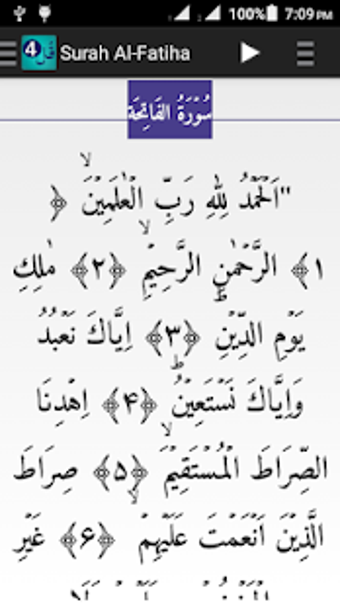 100% 7:09 PM
4 قل Surah Al-Fatiha
سُوْرَةُ الفَاتِحَة
"اَلْحَمْدُ لِلّٰهِ رَبِّ الْعٰلَمِیْنَۙ ﴿
۱﴾ الرَّحْمٰنِ الرَّحِیْمِۙ ﴿۲﴾ مٰلِكِ
یَوْمِ الدِّیْنِؕ ﴿۳﴾ اِیَّاكَ نَعْبُدُ
وَاِیَّاكَ نَسْتَعِیْنُؕ ﴿۴﴾ اِهْدِنَا
الصِّرَاطَ الْمُسْتَقِیْمَۙ ﴿۵﴾ صِرَاطَ
الَّذِیْنَ اَنْعَمْتَ عَلَیْهِمْۙ ﴿۶﴾ غَیْرِ